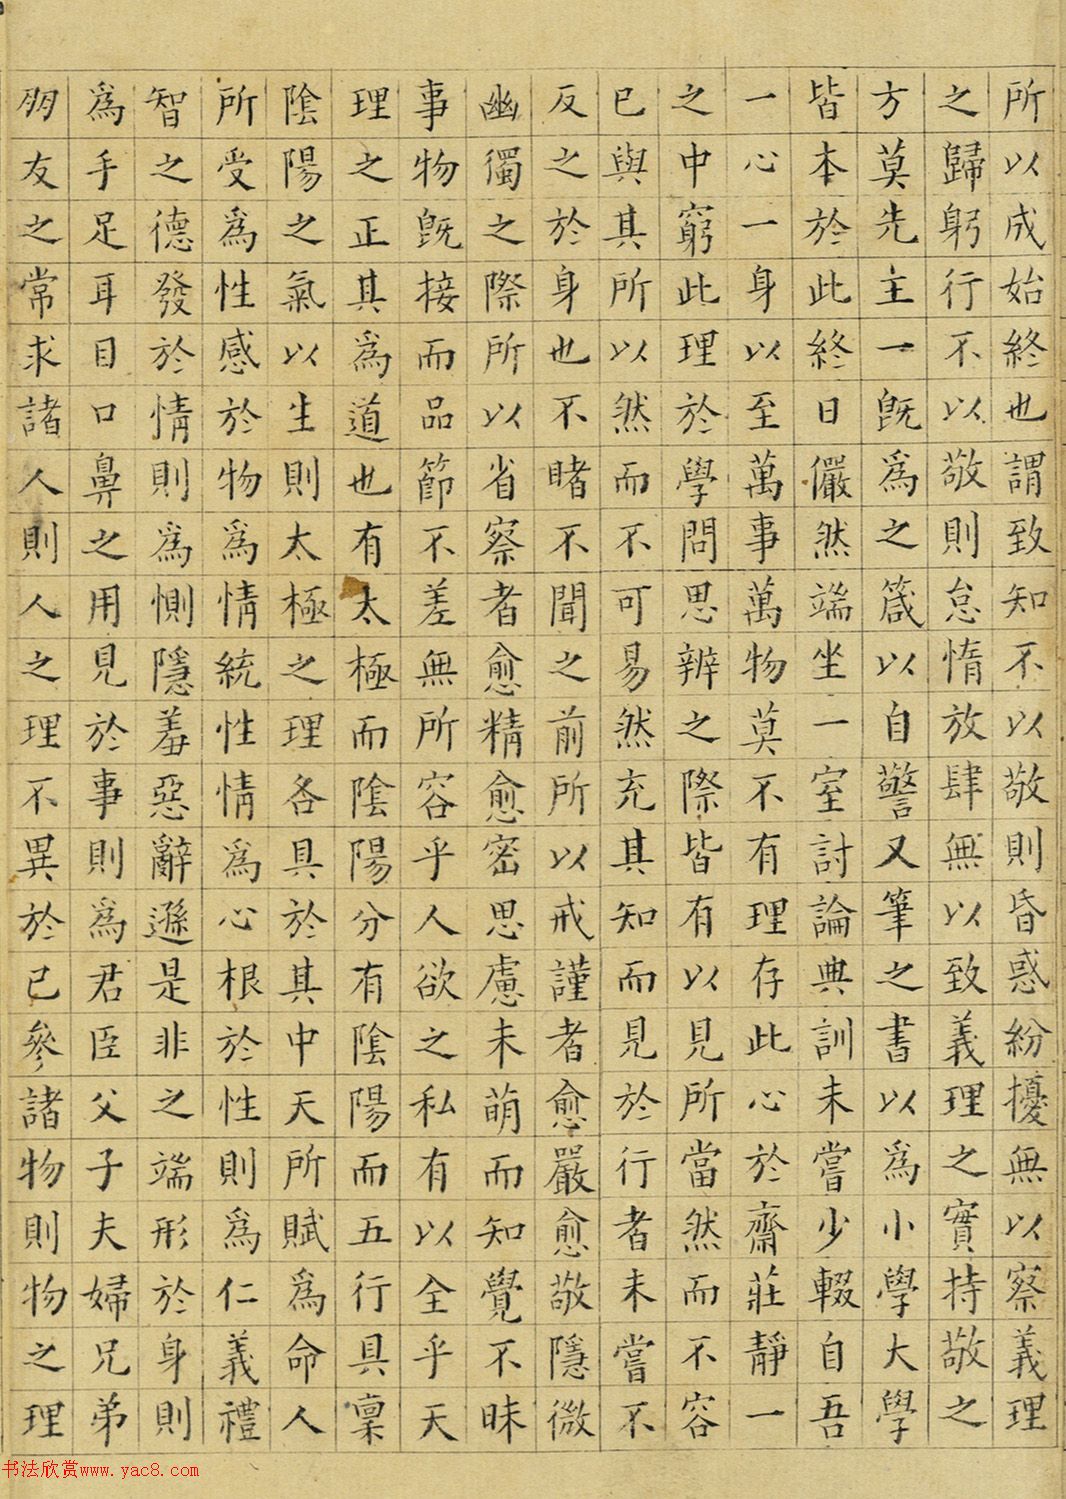 所以成始終也謂致知不以敬則昏惑紛擾無以察義理
之歸躬行不以敬則怠惰放肆無以致義理之實持敬之
方莫先主一既為之箴以自警又筆之書以為小學大學
皆本於此終日儼然端坐一室討論典訓未嘗少輟自吾
一心一身以至萬事萬物莫不有理存此心於齋莊靜一
之中窮此理於學問思辨之際皆有以見所當然而不容
已與其所以然而不可易然充其知而見於行者未嘗不
反之於身也不睹不聞之前所以戒謹者愈嚴愈敬隱微
幽獨之際所以省察者愈精愈密思慮未萌而知覺不昧
事物既接而品節不差無所容乎人欲之私有以全乎天
理之正其為道也有太極而陰陽分有陰陽而五行具稟
陰陽之氣以生則太極之理各具於其中天所賦為命人
所受為性感於物為情統性情為心根於性則為仁義禮
智之德發於情則為惻隱羞惡辭遜是非之端形於身則
為手足耳目口鼻之用見於事則為君臣父子夫婦兄弟
朋友之常求諸人則人之理不異於己參諸物則物之理
书法欣赏www.yac8.com